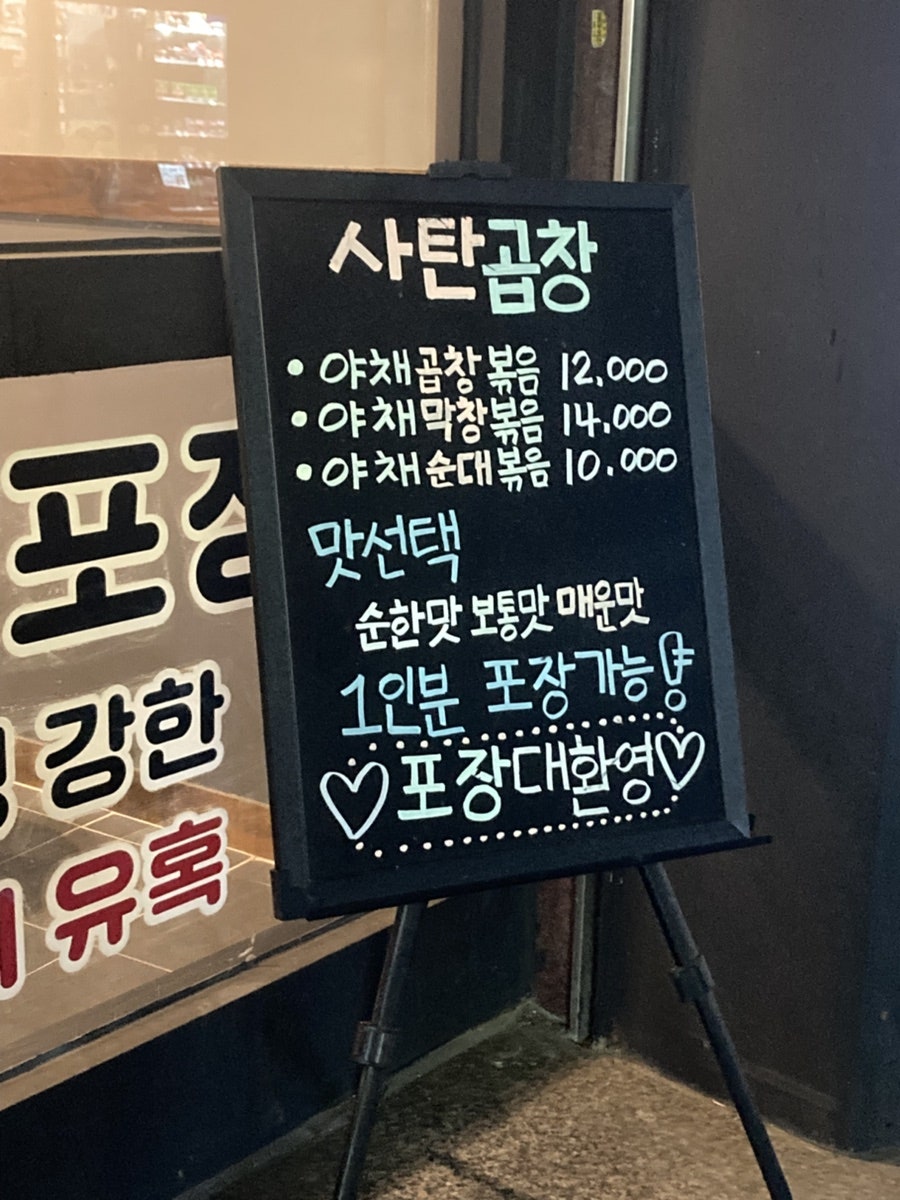 사탄곱창
• 야채곱창볶음 12,000
• 야채막창볶음 14,000
• 야채순대볶음 10,000
맛선택
순한맛 보통맛 매운맛
1인분 포장가능!
♡포장대환영♡
포장
강한
유혹